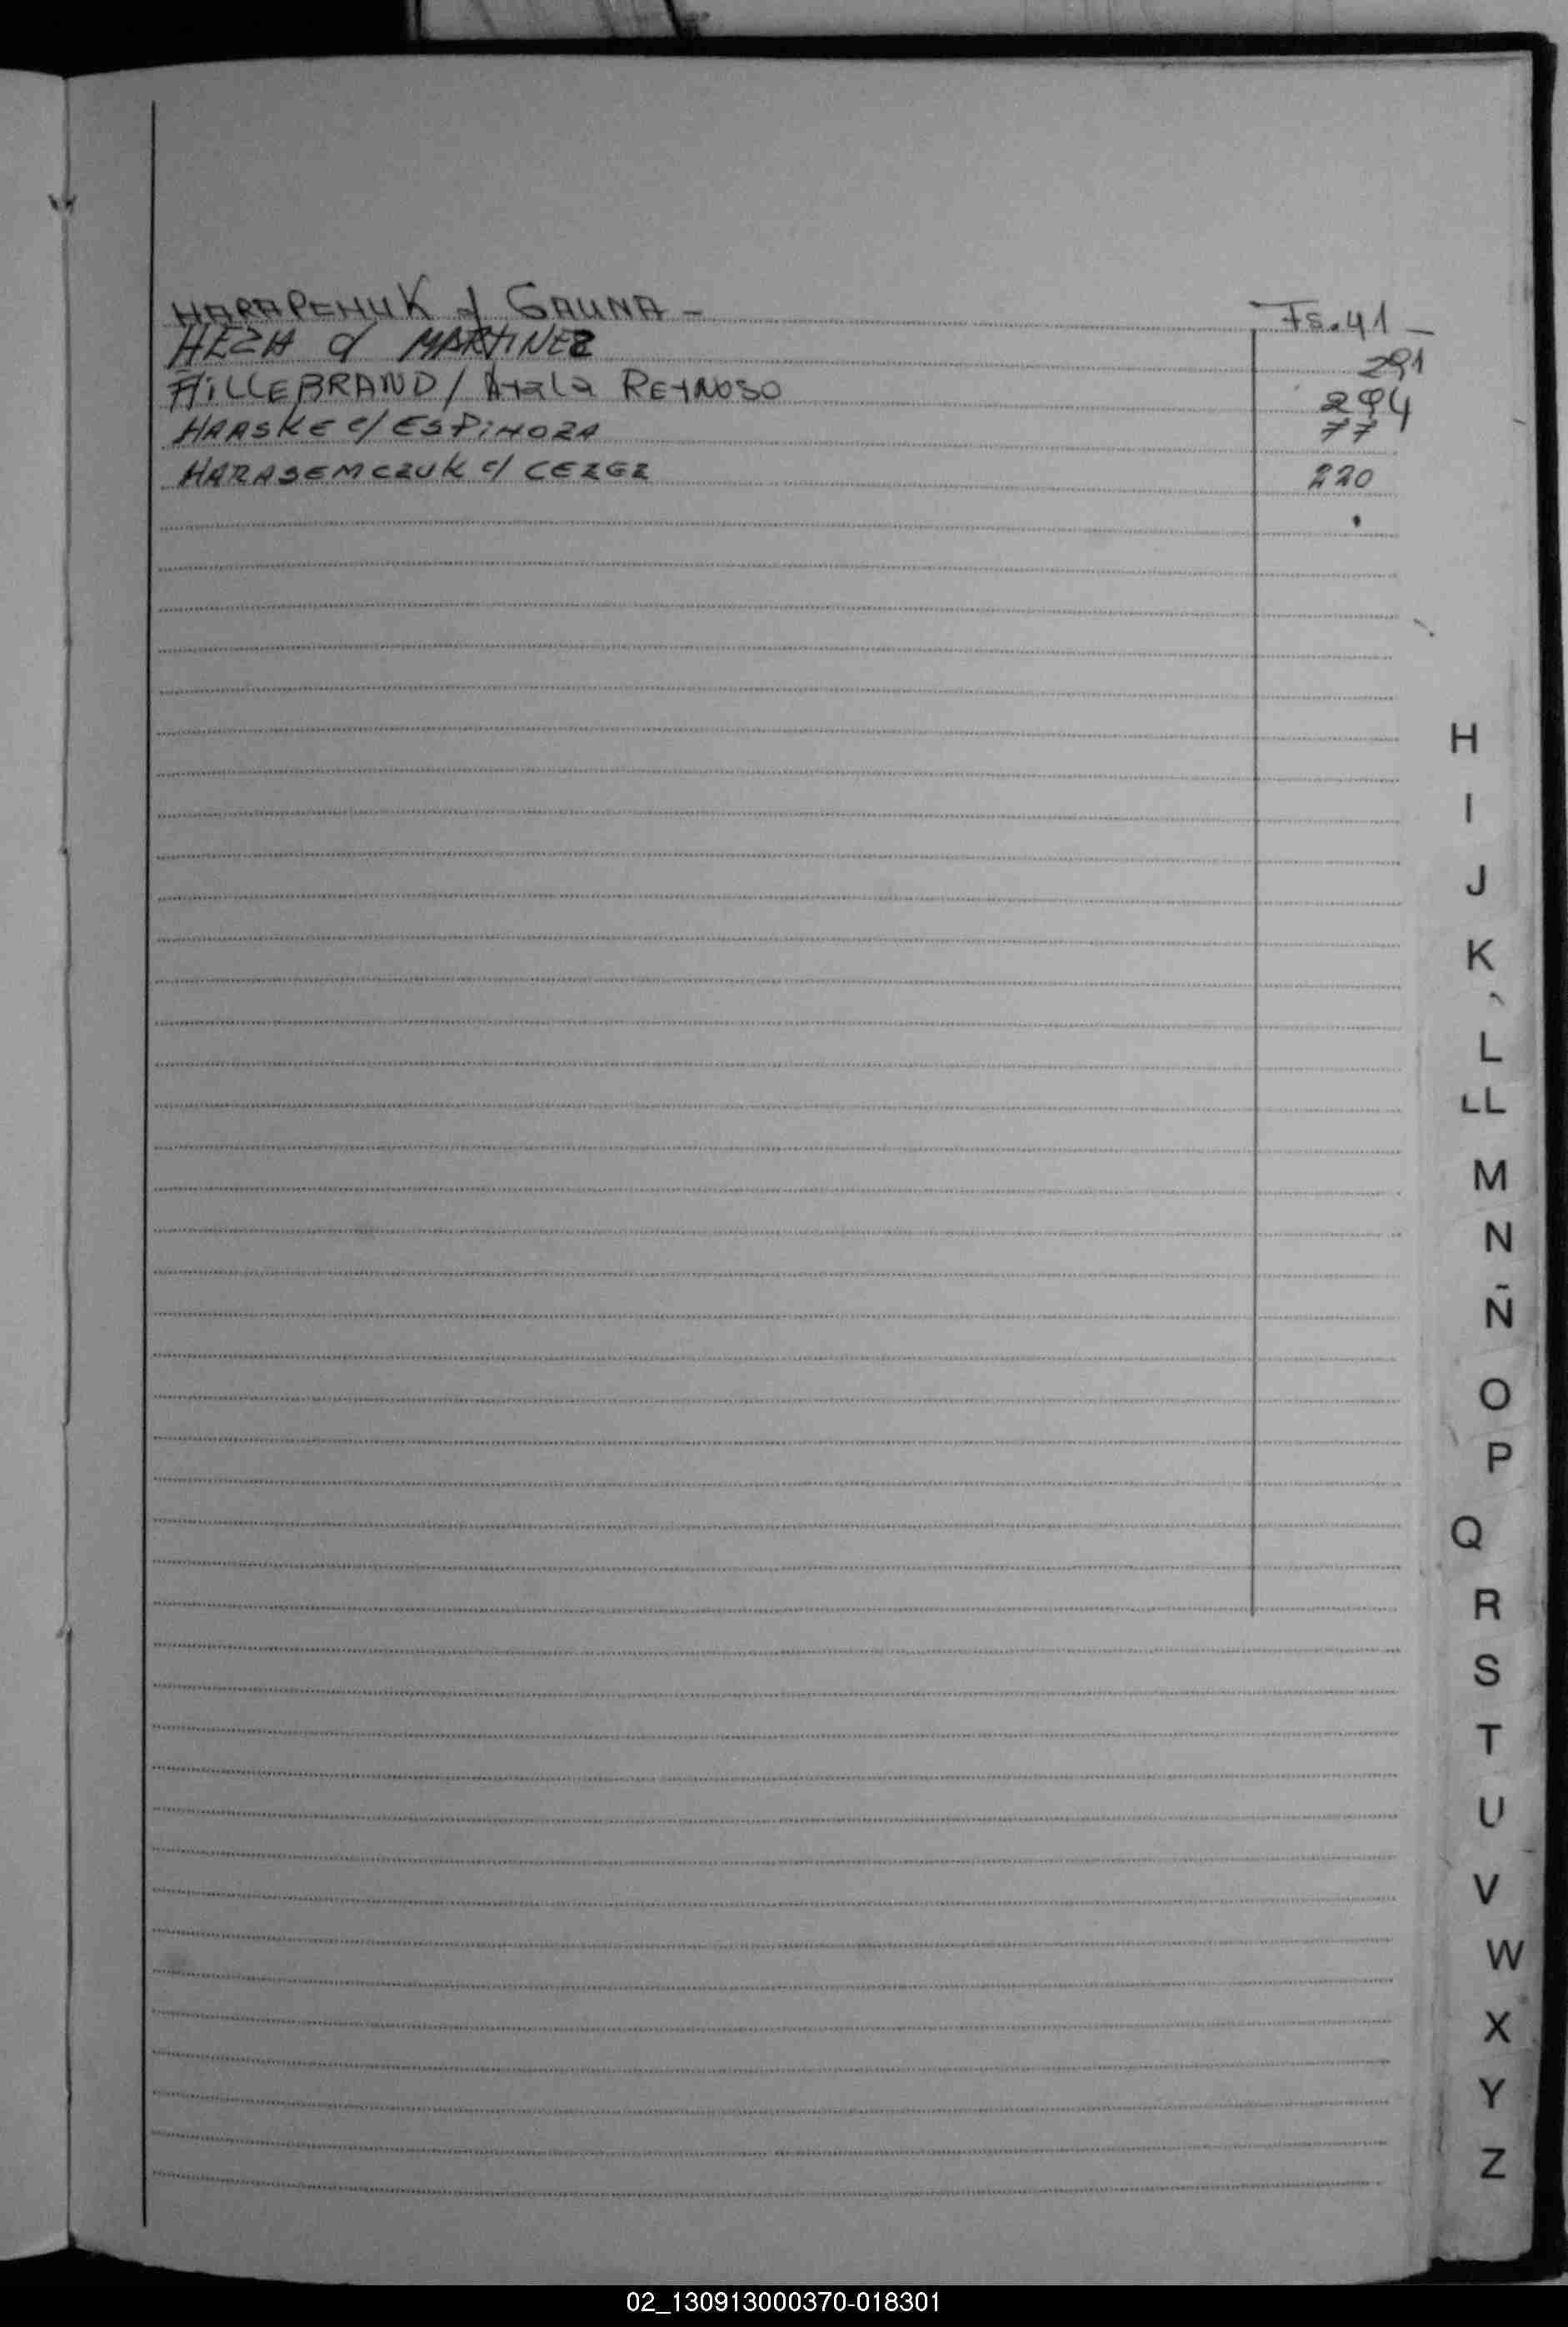 HARAPCHUK c/ GAUNA - Fs. 41 -
HEZA c/ MARTINEZ 291
HILLEBRAND / Ayala REYNOSO 294
HAASKE c/ ESPINOZA 77
HARASEMCZUK c/ 220
H
I
J
K
L
LL
M
N
Ñ
O
P
Q
R
S
T
U
V
W
X
Y
Z
02_130913000370-018301